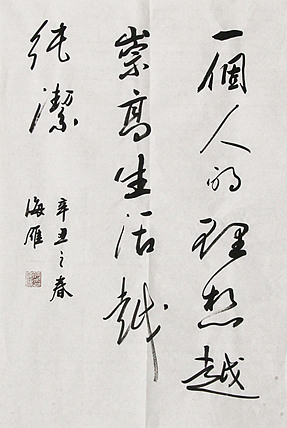 一個人的理想越
崇高生活越
純潔
辛丑之春
海雁